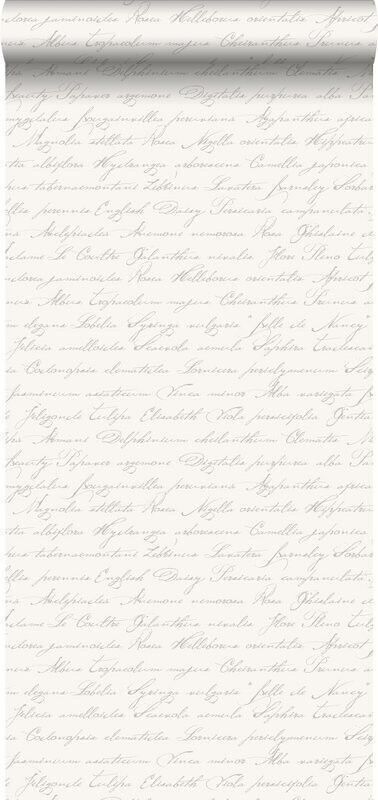 dorea jasminoides Rosa Helleborus orientalis Apricot
Albus Tropaeolum majus Cheiranthus Prunus a
Armani Delphinium cheilanthum Clematis N
Beauty Papaver argemone Digitalis purpurea alba Pa
mygdalus Bougainvillea peruviana Agapanthus africa
Magnolia stellata Rosa Nigella orientalis Hippeastru
tha albiflora Hydrangea arborescens Camellia japonica
hus tabernaemontani Zebrinus Lavatera Barnsley Sorbar
llis perennis English Daisy Persicaria campanulata
a Asclepiadea Anemone nemorosa Rosa Ghislaine d
dame Le Coultre Galanthus nivalis Flore Pleno Tuly
ndorea jasminoides Rosa Helleborus orientalis Apricot
nus Albus Tropaeolum majus Cheiranthus Prunus a
m elegans Lobelia Syringa vulgaris "Belle de Nancy"
Felicia amelloides Scaevola aemula Saphira tradescan
ia Codonopsis clematidea Lonicera periclymenum S
Jasmineum asiaticum Vinca minor Alba variegata
Tulipa Elisabeth Viola persicifolia Gentia
Armani Delphinium cheilanthum Clematis N
Beauty Papaver argemone Digitalis purpurea alba Pa
mygdalus Bougainvillea peruviana Agapanthus africa
Magnolia stellata Rosa Nigella orientalis Hippeastru
tha albiflora Hydrangea arborescens Camellia japonica
hus tabernaemontani Zebrinus Lavatera Barnsley Sorbar
llis perennis English Daisy Persicaria campanulata
a Asclepiadea Anemone nemorosa Rosa Ghislaine d
dame Le Coultre Galanthus nivalis Flore Pleno Tuly
ndorea jasminoides Rosa Helleborus orientalis Apricot
nus Albus Tropaeolum majus Cheiranthus Prunus a
m elegans Lobelia Syringa vulgaris "Belle de Nancy"
Felicia amelloides Scaevola aemula Saphira tradescan
ia Codonopsis clematidea Lonicera periclymenum S
Jasmineum asiaticum Vinca minor Alba variegata
Tulipa Elisabeth Viola persicifolia Gentia